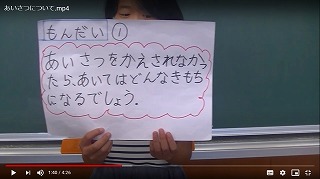 あいさつについて.mp4
もんだい ①
あいさつをかえされなかっ
たら、あいてはどんなきもち
になるでしょう.
1:40 / 4:26